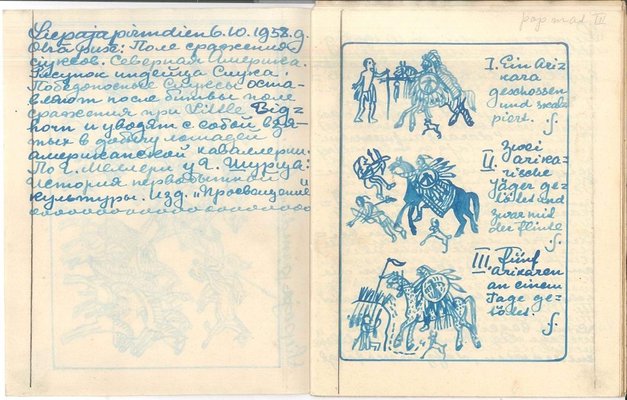 Liepaja pirmdien 6.10.1958.g.
Otra puse: Поле сражения
сиуксов. Северная Америка.
Рисунок индейца Сиукса.
Победоносные Сиуксы оста-
вляют после битвы поле
сражения при Little Big=
horn и уводят с собой взя-
тых в добычу лошадей
американской кавалерии.
По Г. Меллери у Г. Шурца:
История первобытной
культуры. Изд. „Просвещение"
pap. mal. III
I. Ein Ariz
kara
geschossen
und skalp
piert.
II. Zwei
Arika=
rische
Jäger ge=
tödtet und
zwar mit
der Flinte
III. Fünf
Arikaren
an einem
Tage ge=
tödtet.